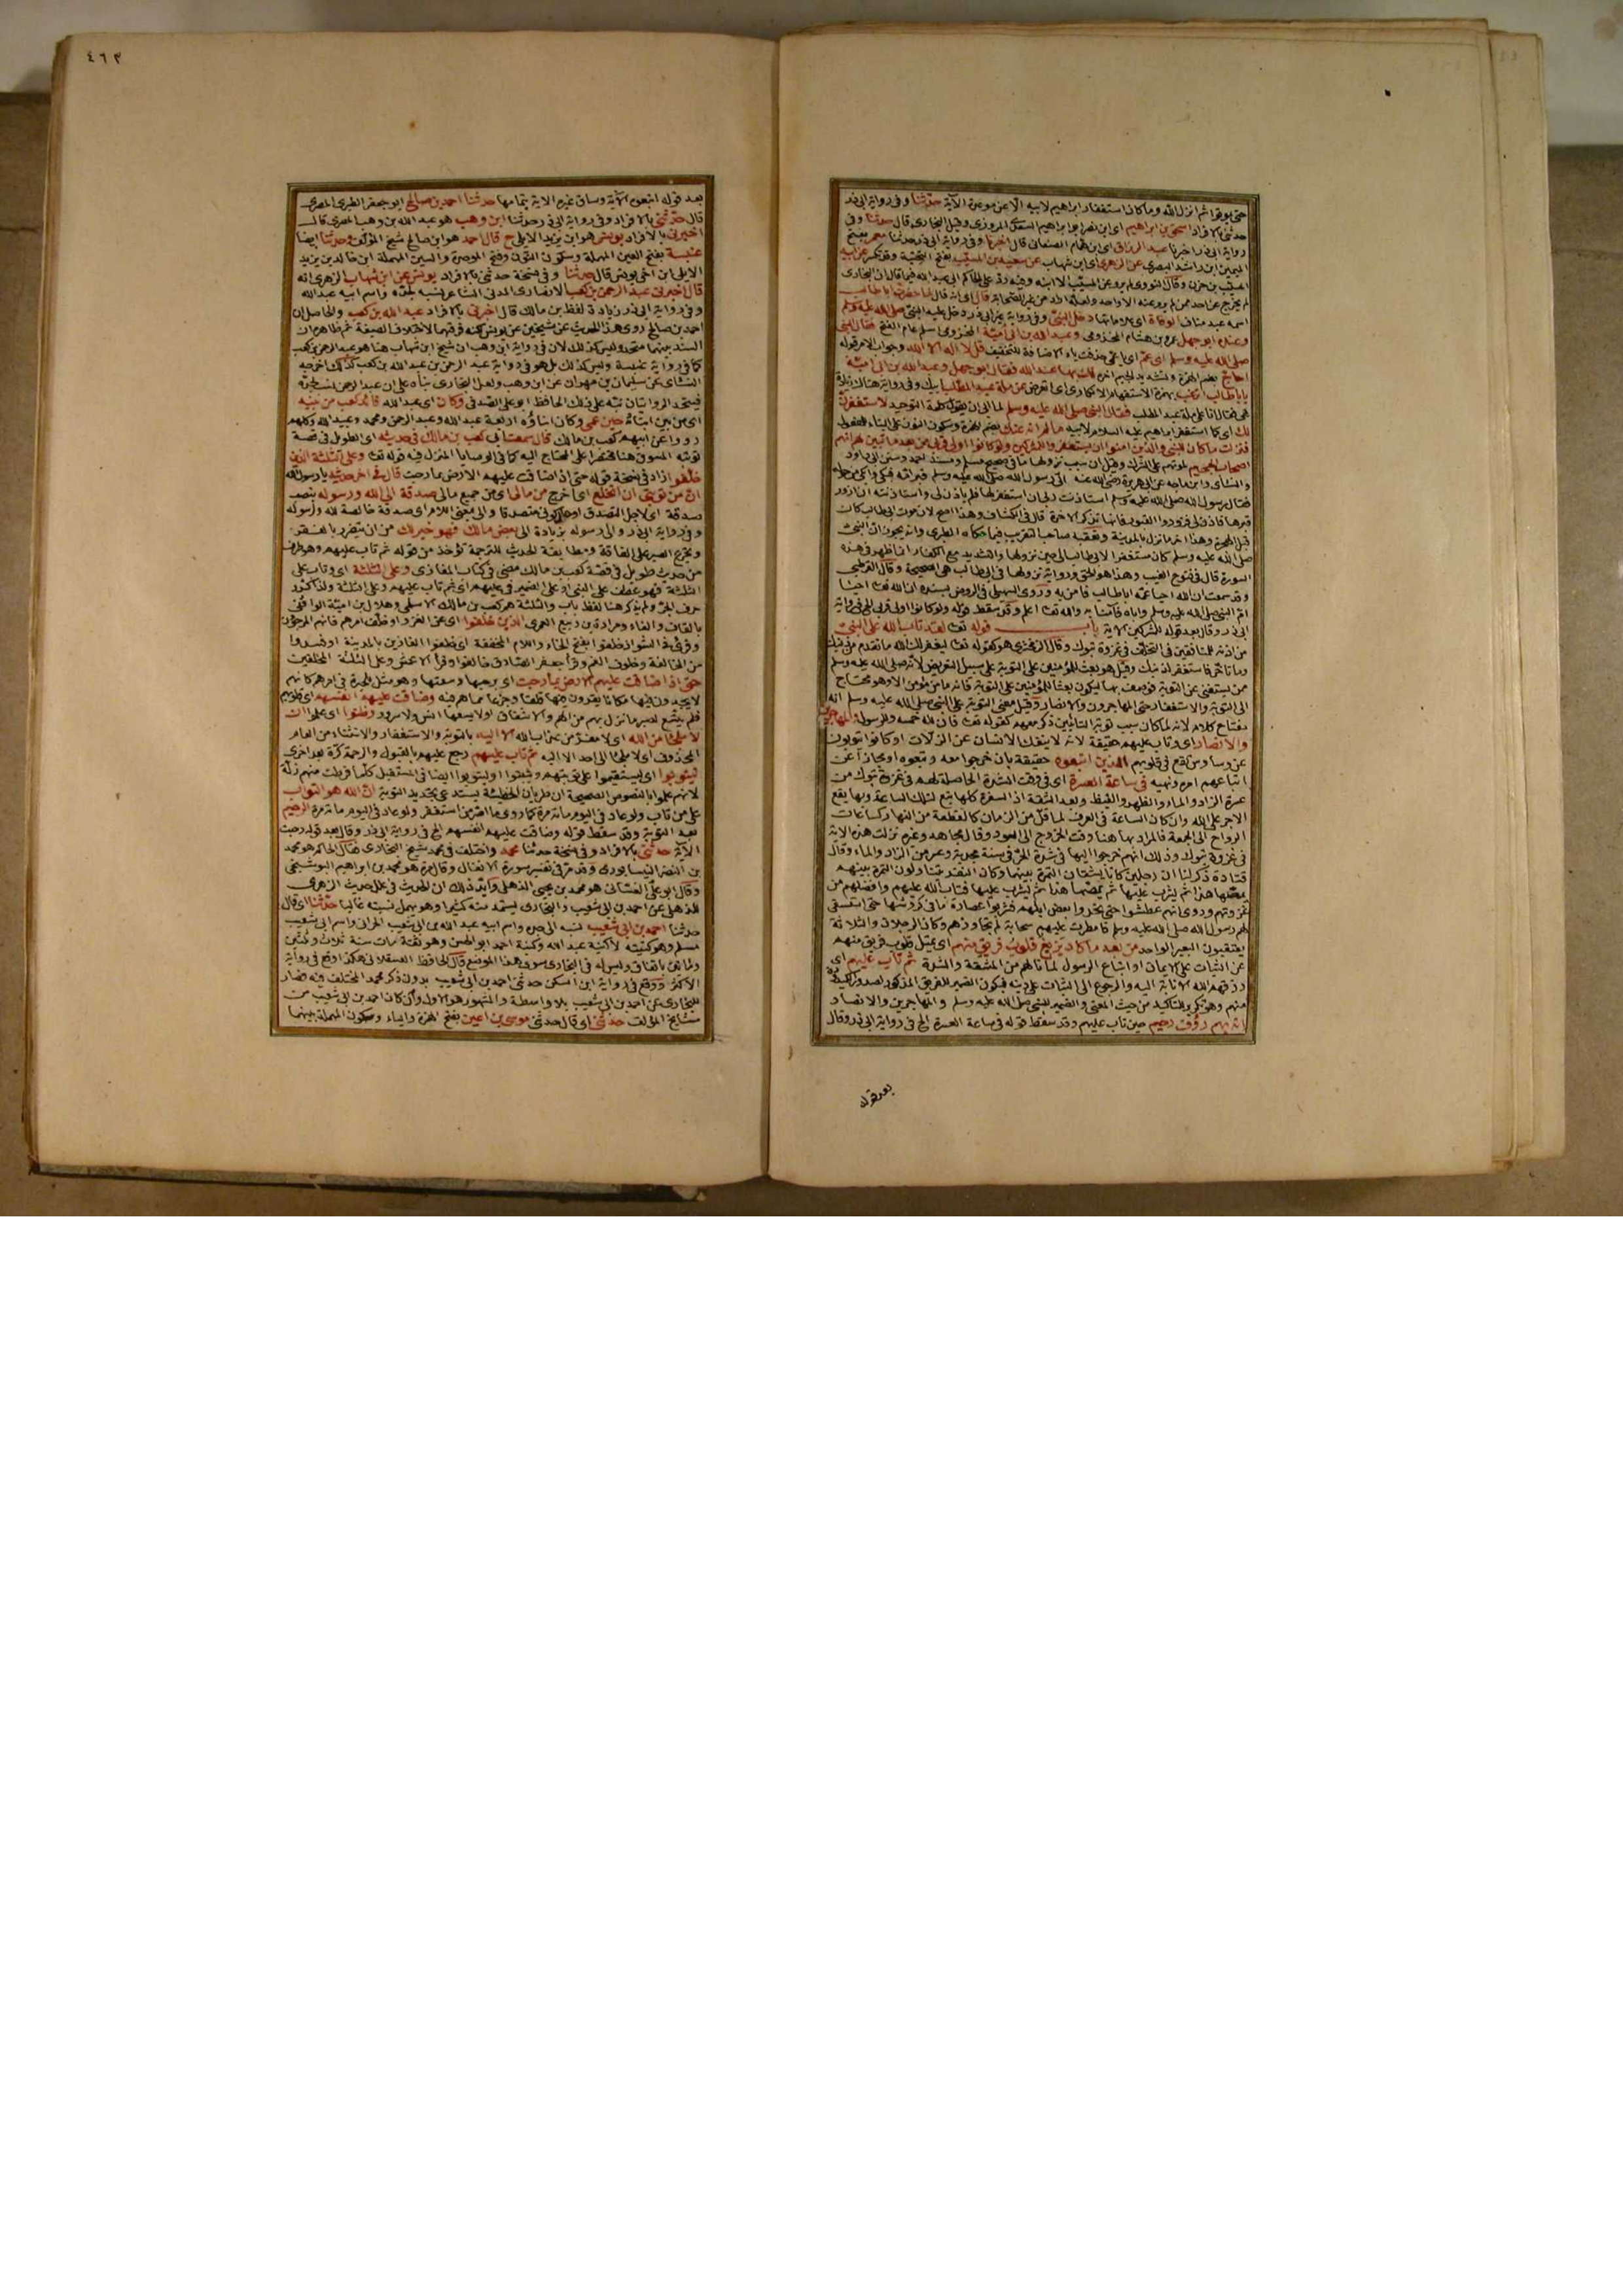 حتى بوقرائم انزل الله وما كان استغفار ابراهيم لابيه الا عن موعدة الآية حدثنا وفى رواية ابى ذر
حدثنى بالافراد اسحق بن ابراهيم اى ابن نصر ابو ابراهيم السعدى المروزى وقيل البخارى قال حدثنا وفى
رواية ابى ذر اخبرنا عبد الرزاق اى ابن همام الصنعانى قال اخبرنا وفى رواية ابى ذر حدثنا معمر بفتح
الميمين ابن راشد البصرى عن الزهرى اى ابن شهاب عن سعيد بن المسيب بفتح التحتية وقد تكسر عن ابيه
المسيب بن حزن وقال النووى لم يرو عن المسيب الا ابنه وفيه رد على الحاكم ابى عبد الله فيما قاله ان البخارى
لم يخرج عن احد ممن لم يرو عنه الا واحد ولعله اراد من غير الصحابة قال اى انه قال لما حضرت ابا طالب
اسمه عبد مناف الوفاة اى علاماتها دخل النبى وفى رواية غير ابى ذر دخل عليه النبى صلى الله عليه وسلم
وعنده ابو جهل عمرو بن هشام المخزومى وعبد الله بن ابى امية المخزومى اسلم عام الفتح فقال النبى
صلى الله عليه وسلم اى عم اى يا عمى حذفت ياء الاضافة للتخفيف قل لا اله الا الله وجواب الامر قوله
احاج بضم الهمزة وتشديد الجيم اخره لك بها عند الله فقال ابو جهل وعبد الله بن ابى امية
يا ابا طالب اترغب بهمزة الاستفهام الانكارى اى اتعرض عن ملة عبد المطلب
لك اى كما استغفر ابراهيم عليه السلام لابيه مالم انه عنك بضم الهمزة وسكون النون على البناء للمفعول
فنزلت ما كان للنبى والذين امنوا ان يستغفروا للمشركين ولو كانوا اولى قربى من بعد ما تبين لهم انهم
اصحاب الجحيم لموتهم على الشرك وقيل ان سبب نزولها ما فى صحيح مسلم ومسند احمد وسنن ابى داود
والنسائى وابن ماجه عن ابى هريرة رضى الله عنه اتى رسول الله صلى الله عليه وسلم قبر امه فبكى وابكى من حوله
فقال رسول الله صلى الله عليه وسلم استاذنت ربى ان استغفر لها فلم ياذن لى واستاذنته ان ازور
قبرها فاذن لى فزوروا القبور فانها تذكر الاخرة قال فى الكشاف وهذا اصح لان موت ابى طالب كان
قبل الهجرة وهذا اخر ما نزل بالمدينة وتعقبه صاحب التقريب فيما حكاه الطيبى وانه يجوز ان النبى
صلى الله عليه وسلم كان مستغفرا لابى طالب الى حين نزولها والتشديد مع الكفار انما ظهر فى هذه
السورة قال فى فتوح الغيب وهذا هو الحق ورواية نزولها فى ابى طالب هى الصحيحة وقال القرطبى
وقد سمعت ان الله احيا عمه ابا طالب فامن به وروى السهيلى فى الروض بسنده ان الله تعا احيا
ام النبى صلى الله عليه وسلم واباه فآمنا به والله تعا اعلم وقد سقط قوله ولو كانوا اولى قربى الخ فى رواية
ابى ذر وقال بعد قوله للمشركين الاية باب قوله تعا لقد تاب الله على النبى
من اذنه للمنافقين فى التخلف فى غزوة تبوك وقال الزمخشرى هو كقوله تعا ليغفر لك الله ما تقدم من ذنبك
وما تأخر فاستغفر لذنبك وقيل هو بعث للمؤمنين على التوبة على سبيل التعريض لانه صلى الله عليه وسلم
ممن يستغنى عن التوبة فوصف بها ليكون بعثا للمؤمنين على التوبة فانه ما من مؤمن الا وهو محتاج
الى التوبة والاستغفار حتى المهاجرون والانصار وقيل معنى التوبة على النبى صلى الله عليه وسلم انه
مفتاح كلام لانه لما كان سبب توبة التائبين ذكر معهم كقوله تعا فان لله خمسه وللرسول والمهاجرين
والانصار اى وتاب عليهم حقيقة لانه لا ينفك الانسان عن الزلات او كانوا يتوبون
عن وساوس تقع فى قلوبهم الذين اتبعوه حقيقة بان خرجوا معه وتبعوه او مجازا عن
اتباعهم امره ونهيه فى ساعة العسرة اى فى وقت الشدة الحاصلة لهم فى غزوة تبوك من
عسرة الزاد والماء والظهر والقيظ وبعد الشقة اذ السفرة كلها تبع لتلك الساعة وبها يقع
الاجر على الله وان كان الساعة فى العرف لما قل من الزمان كالقطعة من النهار كساعات
الرواح الى الجمعة فالمراد بها هنا وقت الخروج الى العود وقال مجاهد وغيره نزلت هذه الاية
فى غزوة تبوك وذلك انهم خرجوا اليها فى شدة الحر فى سنة مجدبة وعسر من الزاد والماء وقال
قتادة ذكر لنا ان رجلين كانا يشقان التمرة بينهما وكان النفر يتناولون التمرة بينهم
يمصها هذا ثم يشرب عليها ثم يمصها هذا ثم يشرب عليها فتاب الله عليهم واقفلهم من
غزوتهم وروى انهم عطشوا حتى نحروا بعض ابلهم فشربوا عصارة ما فى كروشها حتى استسقى
لهم رسول الله صلى الله عليه وسلم فامطرت عليهم سحابة لم تجاوزهم وكان الرجلان والثلاثة
يعتقبون البعير الواحد من بعد ما كاد يزيغ قلوب فريق منهم اى يميل قلوب فريق منهم
عن الثبات على الايمان او اتباع الرسول لما نالهم من المشقة والشدة ثم تاب عليهم اى
رزقهم الله الانابة اليه والرجوع الى الثبات على دينه فيكون الضمير للفريق المذكور لصدور الكيدودة
منهم وهو تكرير للتاكيد من حيث المعنى والضمير للنبى صلى الله عليه وسلم والمهاجرين والانصار
انه بهم رؤف رحيم حين تاب عليهم وقد سقط قوله فى ساعة العسرة الخ فى رواية ابى ذر وقال
بعد قوله
٤٦٣
بعد قوله اتبعوه الآية وساق غيره الاية بتمامها حدثنا احمد بن صالح ابو جعفر الطبرى المصرى
قال حدثنى بالافراد وفى رواية ابى ذر حدثنا ابن وهب هو عبد الله بن وهب المصرى قال
اخبرنى بالافراد يونس هو ابن يزيد الايلى ح قال احمد هو ابن صالح شيخ المؤلف وحدثنا ايضا
عنبسة بفتح العين المهملة وسكون النون وفتح الموحدة والسين المهملة ابن خالد بن يزيد
الايلى ابن اخى يونس قال حدثنا وفى نسخة حدثنى بالافراد يونس عن ابن شهاب الزهرى انه
قال اخبرنى عبد الرحمن بن كعب الانصارى المدنى الشاعر نسبه لجده واسم ابيه عبد الله
وفى رواية ابى ذر زيادة لفظ بن مالك قال اخبرنى بالافراد عبد الله بن كعب والحاصل ان
احمد بن صالح روى هذا الحديث عن شيخين عن يونس لكنه فرقهما لاختلاف الصيغة ثم ظاهره ان
السند بينهما متحد وليس كذلك لان فى رواية ابن وهب ان شيخ ابن شهاب هنا هو عبد الرحمن بن كعب
كما فى رواية عنبسة وليس كذلك بل هو فى رواية عبد الرحمن بن عبد الله بن كعب كذلك اخرجه
النسائى عن سليمان بن مهران عن ابن وهب ولعل البخارى بناه على ان عبد الرحمن نسب لجده
فتتحد الروايتان نبه على ذلك الحافظ ابو على الصدفى وكان اى عبد الله قائد كعب من بنيه
اى من بين ابنائه حين عمى وكان ابناؤه اربعة عبد الله وعبد الرحمن ومحمد وعبيد الله وكلهم
رووا عن ابيهم كعب بن مالك قال سمعت ابى كعب بن مالك فى حديثه اى الطويل فى قصة
توبته المسوق هنا مختصرا على المحتاج اليه كما فى الوصايا المنزل فيه قوله تعا وعلى الثلثة الذين
خلفوا زاد فى نسخة قوله حتى اذا ضاقت عليهم الارض بما رحبت قال فى اخر حديثه يا رسول الله
ان من توبتى ان انخلع اى اخرج من مالى اى من جميع مالى صدقة الى الله ورسوله بنصب
صدقة اى لاجل التصدق او حال كونى متصدقا والى بمعنى اللام اى صدقة خالصة لله ولرسوله
وفى رواية ابى ذر والى رسوله بزيادة الى بعض مالك فهو خير لك من ان تتضرر بالفقر
وتجزع الصبر على الفاقة ومطابقة الحديث للترجمة تؤخذ من قوله ثم تاب عليهم وهو طرف
من حديث طويل فى قصة كعب بن مالك مضى فى كتاب المغازى وعلى الثلثة اى وتاب على
الثلثة فهو عطف على النبى او على الضمير فى عليهم اى ثم تاب عليهم وعلى الثلثة ولذا كرر
حرف الجر ولم يذكر هنا لفظ باب والثلثة هم كعب بن مالك الاسلمى وهلال بن امية الواقفى
بالقاف والفاء ومرارة بن ربيع العمرى الذين خلفوا اى عن الغزو او خلف امرهم فانهم المرجؤن
وقرئ فى الشواذ خلفوا بفتح الخاء واللام المخففة اى خلفوا الغازين بالمدينة او فسدوا
من الخالفة وخلوف الفم وقرأ جعفر الصادق خالفوا وقرأ الاعمش وعلى الثلثة المخلفين
حتى اذا ضاقت عليهم الارض بما رحبت اى برحبها وسعتها وهو مثل للحيرة فى امرهم كانهم
لا يجدون فيها مكانا يقرون فيها قلقا وجزعا مما هم فيه وضاقت عليهم انفسهم اى قلوبهم
فلم يتسع لصبر ما نزل بهم من الهم والاشفاق او لا يسعها انس ولا سرور وظنوا اى علموا ان
لا ملجأ من الله اى لا مفر من عذاب الله الا اليه بالتوبة والاستغفار والاستثناء من العام
المحذوف اى لا ملجأ الى احد الا اليه ثم تاب عليهم رجع عليهم بالقبول والرحمة كرة بعد اخرى
ليتوبوا اى ليستقيموا على توبتهم ويثبتوا او ليتوبوا ايضا فى المستقبل كلما فرطت منهم زلة
لانهم علموا بالنصوص الصحيحة ان طريان الخطيئة يستدعى تجديد التوبة ان الله هو التواب
على من تاب ولو عاد فى اليوم مائة مرة كما روى ما اصر من استغفر ولو عاد فى اليوم مائة مرة الرحيم
بعد التوبة وقد سقط قوله وضاقت عليهم انفسهم الخ فى رواية ابى ذر وقال بعد قوله رحبت
الآية حدثنى بالافراد وفى نسخة حدثنا محمد واختلف فى محمد شيخ البخارى فقال الحاكم هو محمد
بن النضر النيسابورى وقد مر فى تفسير سورة الانفال وقال مرة هو محمد بن ابراهيم البوشنجى
وقال ابو على الغسانى هو محمد بن يحيى الذهلى وايد ذلك ان الحديث فى علل حديث الزهرى
للذهلى عن احمد بن ابى شعيب والبخارى يستمد منه كثيرا وهو يهمل نسبته غالبا حدثنا اى قال
حدثنا احمد بن ابى شعيب نسبه الى جده واسم ابيه عبد الله بن ابى شعيب الحرانى واسم ابى شعيب
مسلم وهو كنيته لا كنية عبد الله وكنية احمد ابو الحسن وهو ثقة مات سنة ثلاث وثلثين
ومائتين باتفاق وليس له فى البخارى سوى هذا الموضع قال الحافظ العسقلانى هكذا وقع فى رواية
الاكثر ووقع فى رواية ابن السكن حدثنى احمد بن ابى شعيب بدون ذكر محمد المختلف فيه فصار
للبخارى عن احمد بن ابى شعيب بلا واسطة والمشهور هو الاول وان كان احمد بن ابى شعيب من
مشايخ المؤلف حدثنا اى قال حدثنى موسى بن اعين بفتح الهمزة والياء وسكون المهملة بينهما